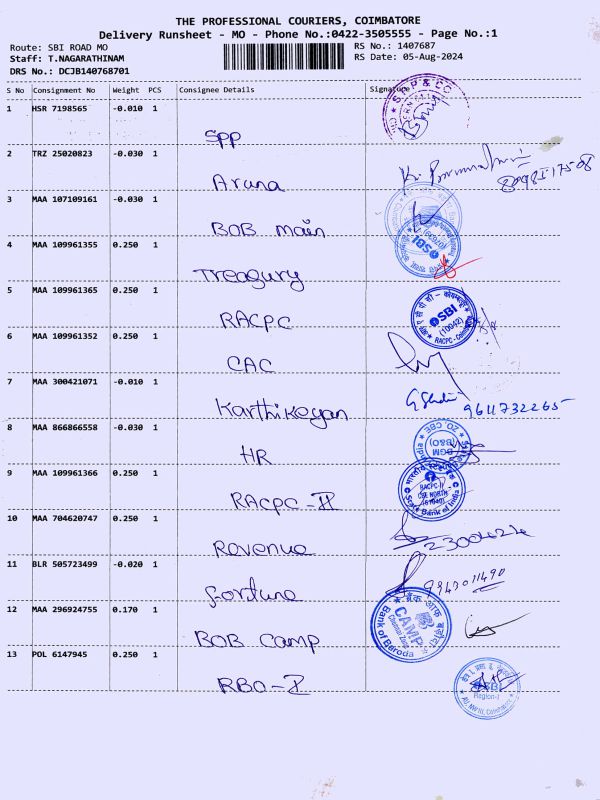 THE PROFESSIONAL COURIERS, COIMBATORE
Delivery Runsheet - MO - Phone No.:0422-3505555 - Page No.:1
Route: SBI ROAD MO RS No.: 1407687
Staff: T.NAGARATHINAM RS Date: 05-Aug-2024
DRS No.: DCJB140768701
S No Consignment No Weight PCS Consignee Details Signature
1 HSR 7198565 -0.010 1
S.R.P & CO
SPP
2 TRZ 25020823 -0.030 1
Aruna
3 MAA 107109161 -0.030 1
BOB main
4 MAA 109961355 0.250 1
SBI
Treasury
5 MAA 109961365 0.250 1
SBI
(10042)
RACPC
6 MAA 109961352 0.250 1
CAC
7 MAA 300421071 -0.010 1
Karthikeyan
9611732265
8 MAA 866866558 -0.030 1
ZO, CBE
DGM
(B&O)
HR
9 MAA 109961366 0.250 1
RACPC-II
State Bank of India
RACPC-II
10 MAA 704620747 0.250 1
2300424
Revenue
11 BLR 505723499 -0.020 1
9843011490
Fortune
12 MAA 296924755 0.170 1
बैंक ऑफ़ बड़ौदा
CAMP
Bank of Baroda
BOB Camp
13 POL 6147945 0.250 1
SBI
Region-I
RBO-I